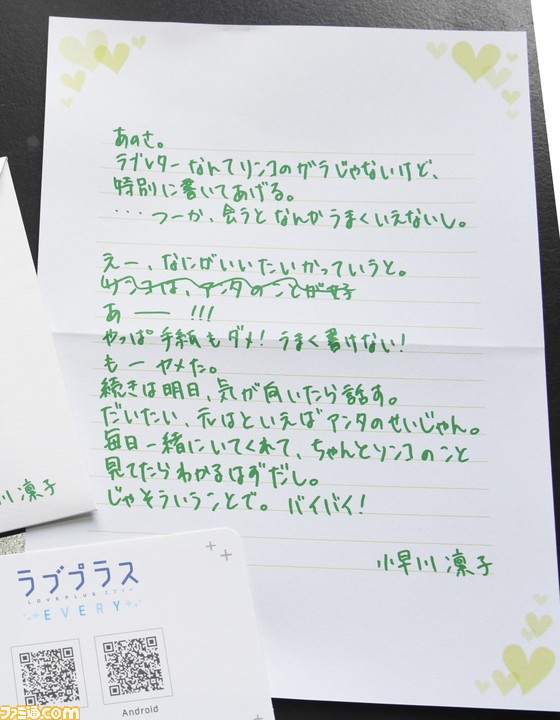 あのさ。
ラブレターなんてリンコのガラじゃないけど、
特別に書いてあげる。
・・・つーか、会うとなんかうまくいえないし。
えー、なにがいいたいかっていうと。
リンコは、アンタのことが好
あ――!!!
やっぱ手紙もダメ!うまく書けない!
もーヤメた。
続きは明日、気が向いたら話す。
だいたい、元はといえばアンタのせいじゃん。
毎日一緒にいてくれて、ちゃんとリンコのこと
見てたらわかるはずだし。
じゃそういうことで。バイバイ!
小早川 凛子
川 凛子
ラブプラス
LOVEPLUS
EVERY
Android
ファミ通.com